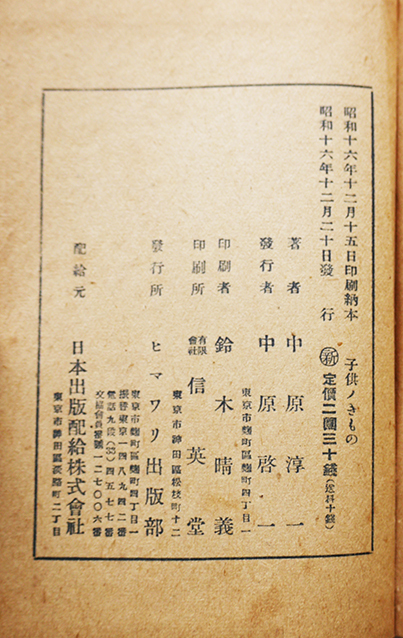 昭和十六年十二月十五日印刷納本
子供ノきもの
昭和十六年十二月二十日發行
新 定價二圓三十錢(送料十錢)
著者 中原淳一
東京市麴町區麴町四丁目一
發行者 中原啓一
印刷者 鈴木晴義
東京市神田區松枝町十二
印刷所 有限會社 信英堂
發行所 ヒマワリ出版部
東京市麴町區麴町四丁目一
振替東京一四八九四二番
電話九段(33)四五七七番
交編會員番號一二七〇〇六番
配給元 日本出版配給株式會社
東京市神田區淡路町二丁目